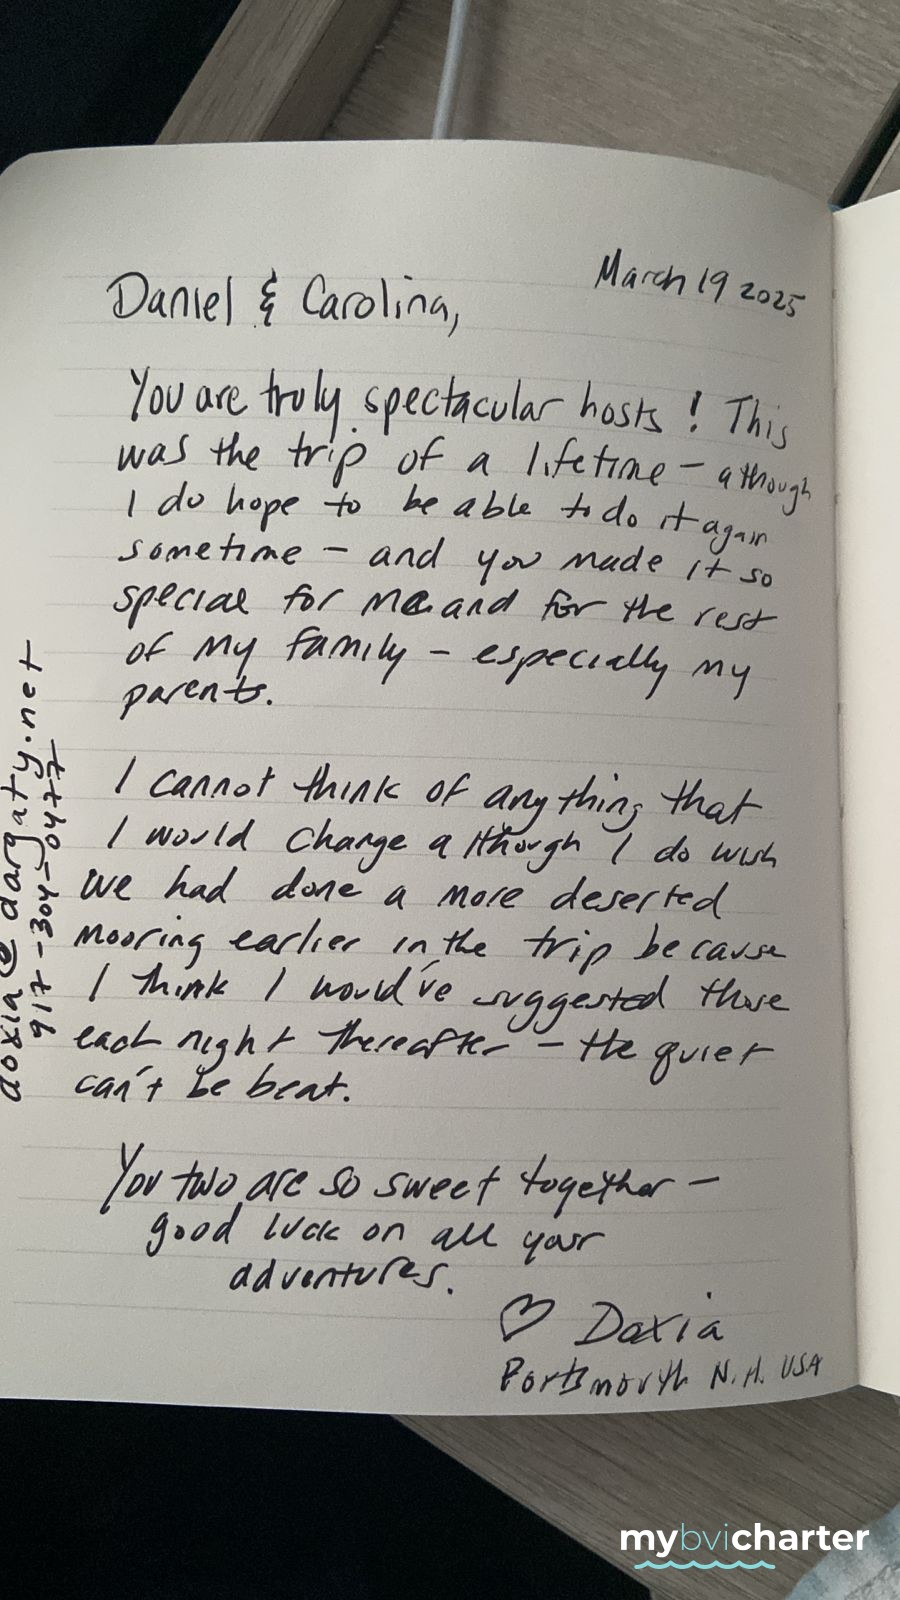 March 19 2025
Daniel & Carolina,
You are truly spectacular hosts! This
was the trip of a lifetime – although
I do hope to be able to do it again
sometime – and you made it so
special for me and for the rest
of my family – especially my
parents.
I cannot think of anything that
I would change although I do wish
we had done a more deserted
mooring earlier in the trip because
I think I would've suggested those
each night thereafter – the quiet
can't be beat.
You two are so sweet together –
good luck on all your
adventures.
♡ Doxia
Portsmouth N.H. USA
doxia@dargaty.net
917-304-0477
mybvicharter